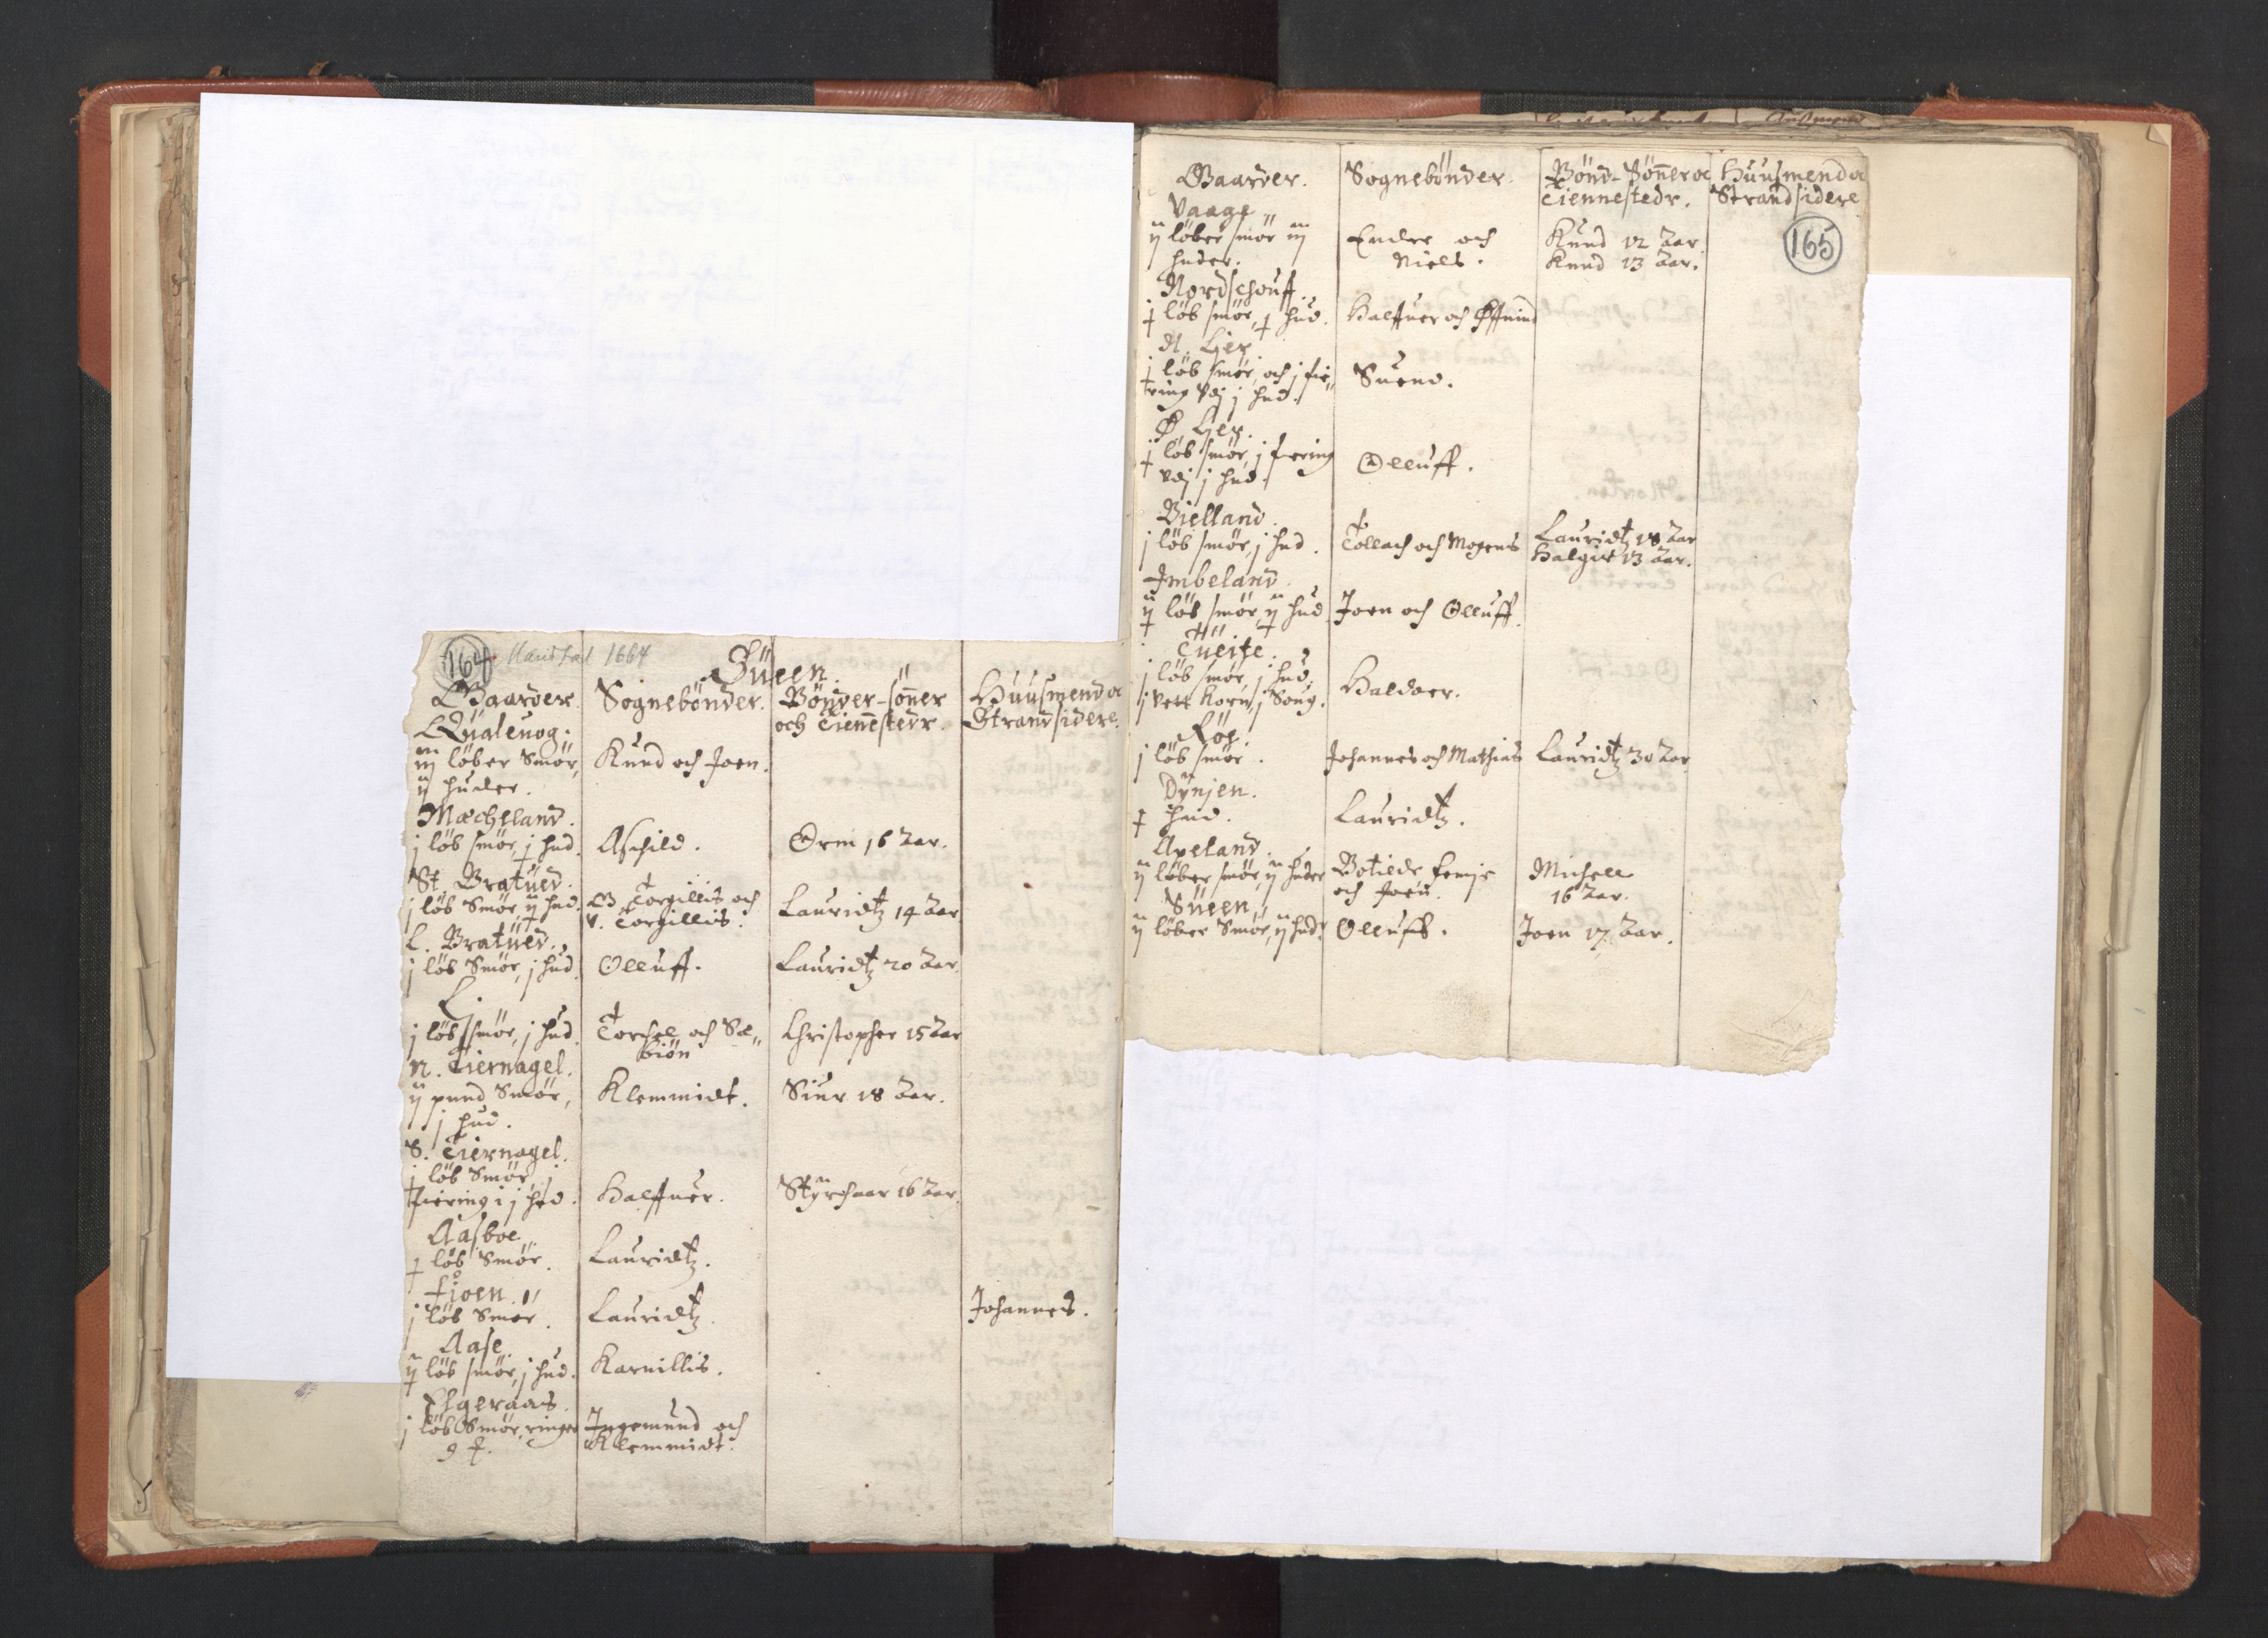 164 Mandtal 1664
Süeen.
Gaarder. Sognebönder. Bönder-söner och Tiennestedr. Huusmend oc Strandsidere.
Qüaleuog.
iij löber Smör, ij huder. Knud och Joen.
Mæcheland.
j löb smör, j hud. Aschild. Orm 16 Aar.
St. Bratüed.
j löb Smör, ij hud. G. Torgillis och V. Torgillis. Lauridtz 14 Aar
L. Bratüed.
j löb Smör, j hud. Olluff. Lauridtz 20 Aar.
Lj
j löb smör, j hud. Torchel och Sæ„ biön Christopher 15 Aar
N. Tiernagel.
ij pund Smör, j hud. Klemmidt. Siur 18 Aar.
S. Tiernagel.
j löb Smör, j fiering i j hud. Halffuer. Styrchaar 16 Aar.
Aasboe.
j löb Smör. Lauridtz.
Fioen.
j löb Smör. Lauridtz. Johannes.
Aase.
ij löb smör, j hud. Karnillis.
Elgeraas.
j löb Smör, ringer Ingemund och
Klemmidt.
165
Gaarder. Sognebönder. Bönd-Söner oc Tiennestedr. Huusmend oc Strandsidere
Vaage
ij löber smör iij huder. Endre och Niels. Knud 12 Aar.
Knud 13 Aar.
Nordschouff.
j löb smör, j hud. Halffuer och Øffuind
N. Ljer.
j löb smör, och j fie„ ring udj j hud. Suend.
Ø. Ljer.
j löb smör, j fiering udj j hud. Olluff.
Bielland.
j löb smör, j hud. Tollach och Mogens Lauridtz 18 Aar
Halgier 13 Aar.
Imbeland.
ij löb smör, ij hud Joen och Olluff.
Tüeite.
j löb smör, j hud,
j vett Korn, j Boug. Haldoer.
Röe.
j löb smör. Johannes och Mathias Lauridtz 30 Aar
Dynjen.
j hud. Lauridtz.
Aueland.
ij löber smör, ij huder Botilde Enije och Joen. Michell 16 Aar.
Süeen.
ij löber Smör, ij hud. Olluff. Joen 17 Aar.